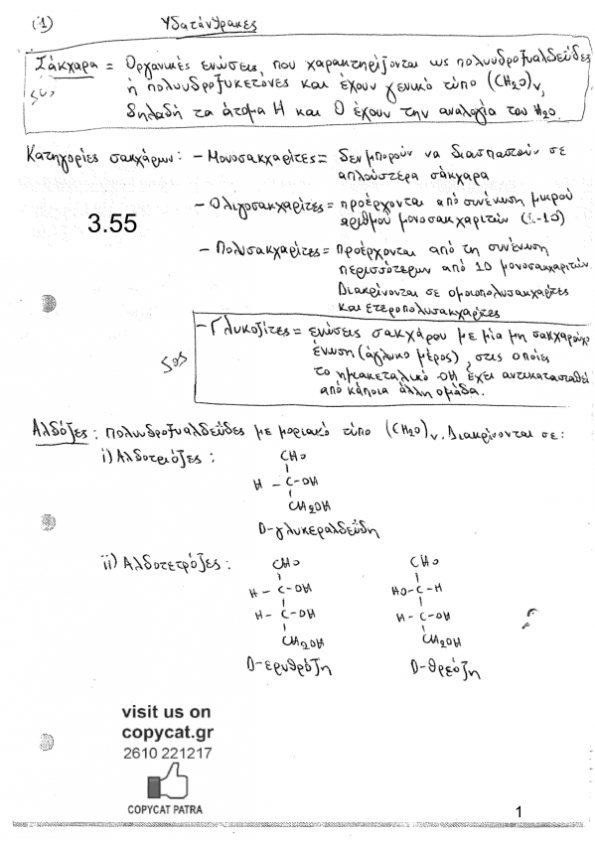 (1) Υδατάνθρακες
Σάκχαρα = Οργανικές ενώσεις, που χαρακτηρίζονται ως πολυυδροξυαλδεΰδες
sos ή πολυυδροξυκετόνες και έχουν γενικό τύπο (CH2O)ν,
δηλαδή τα άτομα H και O έχουν την αναλογία του H2O.
Κατηγορίες σακχάρων: - Μονοσακχαρίτες = δεν μπορούν να διασπαστούν σε
απλούστερα σάκχαρα
- Ολιγοσακχαρίτες = προέρχονται από συνένωση μικρού
3.55 αριθμού μονοσακχαριτών (2-10)
- Πολυσακχαρίτες = προέρχονται από τη συνένωση
περισσότερων από 10 μονοσακχαριτών.
Διακρίνονται σε ομοιοπολυσακχαρίτες
και ετεροπολυσακχαρίτες
- Γλυκοζίτες = ενώσεις σακχάρου με μία μη σακχαρούχο
sos ένωση (άγλυκο μέρος), στις οποίες
το ημιακεταλικό -OH έχει αντικατασταθεί
από κάποια άλλη ομάδα.
Αλδόζες: πολυυδροξυαλδεΰδες με μοριακό τύπο (CH2O)ν. Διακρίνονται σε:
i) Αλδοτριόζες: CHO
H - C - OH
CH2OH
D-γλυκεραλδεΰδη
ii) Αλδοτετρόζες: CHO CHO
H - C - OH HO - C - H
H - C - OH H - C - OH
CH2OH CH2OH
D-ερυθρόζη D-θρεόζη
visit us on
copycat.gr
2610 221217
COPYCAT PATRA
1